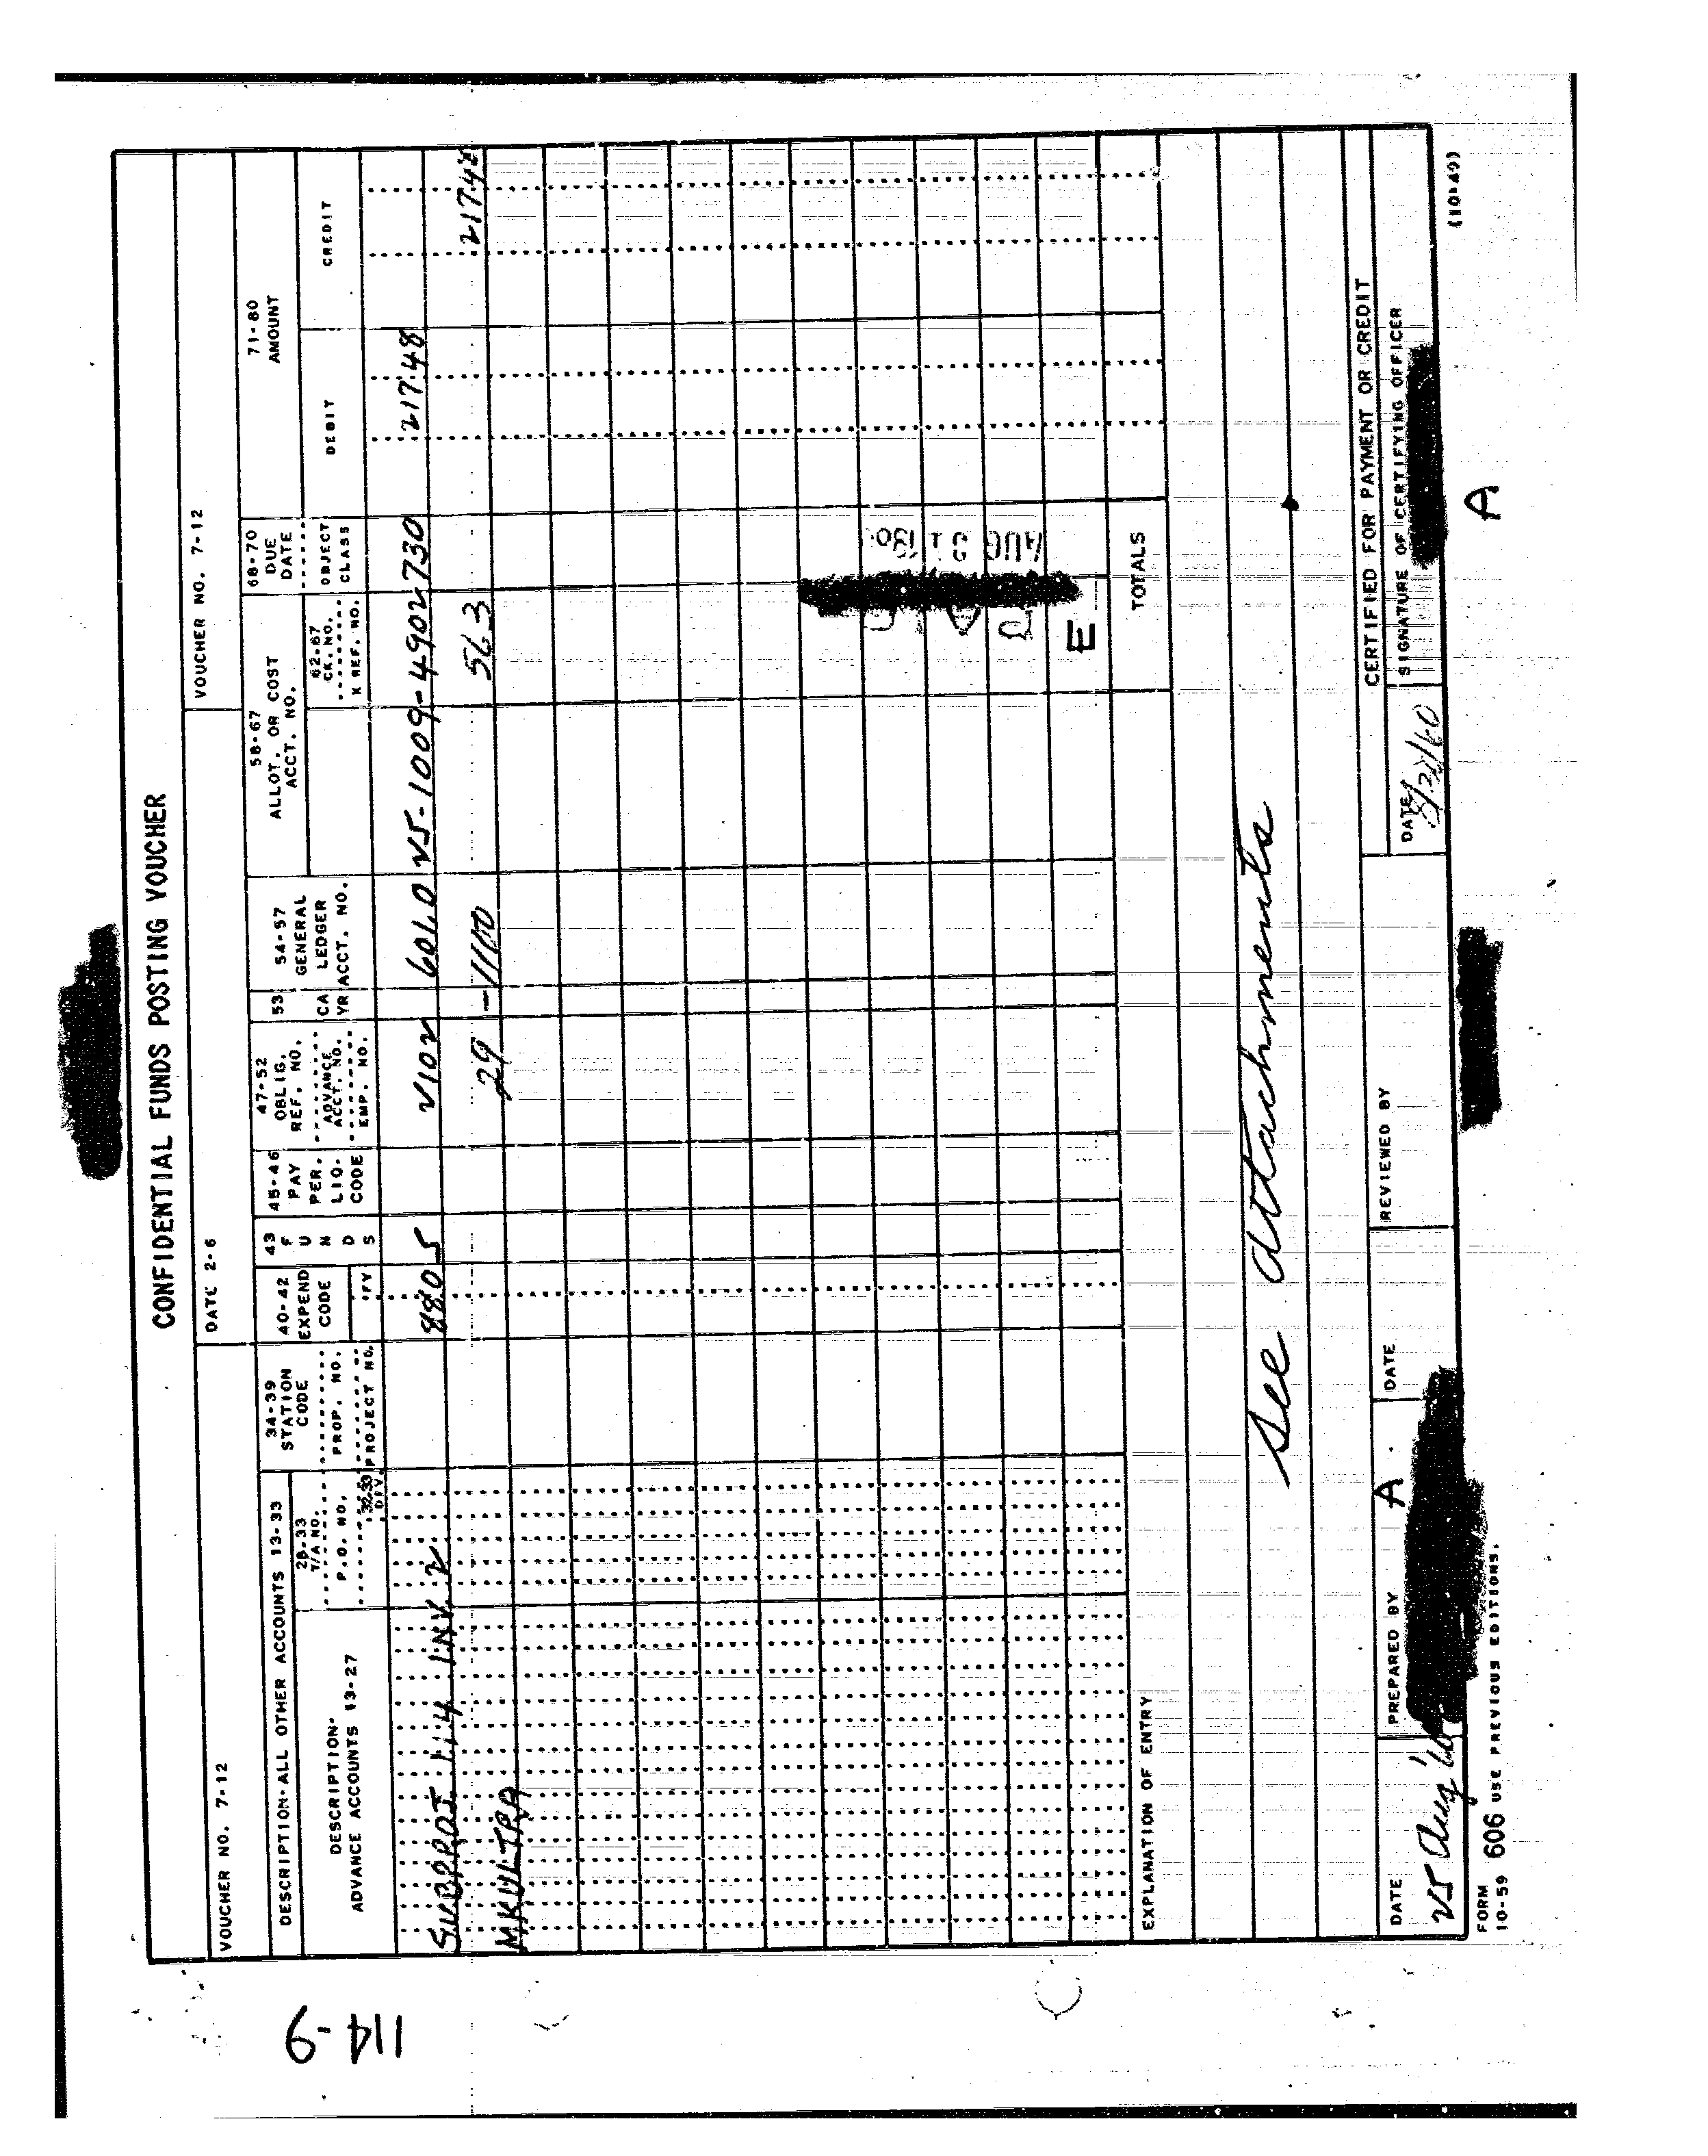 CONFIDENTIAL FUNDS POSTING VOUCHER
VOUCHER NO. 7-12 DATE 2-6 VOUCHER NO. 7-12
DESCRIPTION-ALL OTHER ACCOUNTS 13-33
DESCRIPTION-
ADVANCE ACCOUNTS 13-27
28-33
T/A NO.
P.O. NO.
32-33
DIV.
34-39
STATION
CODE
PROP. NO.
PROJECT NO.
40-42
EXPEND
CODE
FY
43
F
U
N
D
S
45-46
PAY
PER.
LIQ.
CODE
47-52
OBLIG.
REF. NO.
ADVANCE
ACCT. NO.
EMP. NO.
53
CA
YR
54-57
GENERAL
LEDGER
ACCT. NO.
58-67
ALLOT. OR COST
ACCT. NO.
62-67
CK. NO.
X REF. NO.
68-70
DUE
DATE
OBJECT
CLASS
71-80
AMOUNT
DEBIT CREDIT
SUBPROJ 114 INV. 2 880 5 2102 601.0 25-1009-4902 730 217.48
MKULTRA 29 563 217.48
PAID
AUG 31 1960
E
TOTALS
EXPLANATION OF ENTRY
See attachments
CERTIFIED FOR PAYMENT OR CREDIT
DATE PREPARED BY A DATE REVIEWED BY DATE SIGNATURE OF CERTIFYING OFFICER
25 Aug '60
FORM
10-59 606 USE PREVIOUS EDITIONS. A (10-49)
114-9